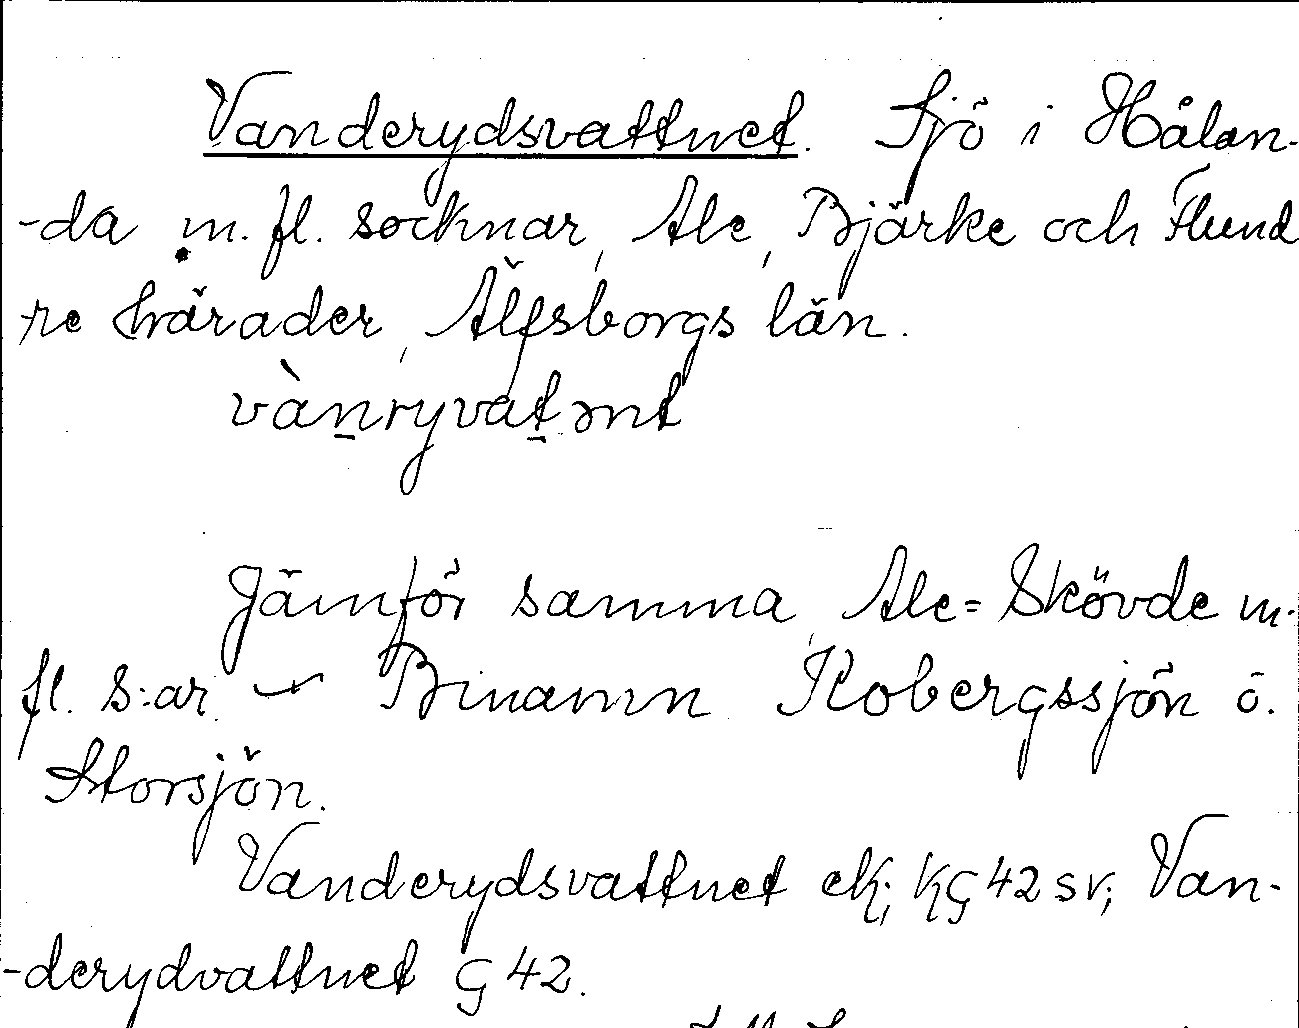 Vanderydsvattnet. Sjö i Hålan-
-da m.fl. socknar, Ale, Bjärke och Flund
re härader, Älfsborgs län.
vànryvatənt
Jämför samma, Ale-Skövde m.
fl. s:ar. Binamn Kobergssjön o.
Storsjön.
Vanderydsvattnet ek; KG 42 sv; Van-
-derydvattnet G 42.